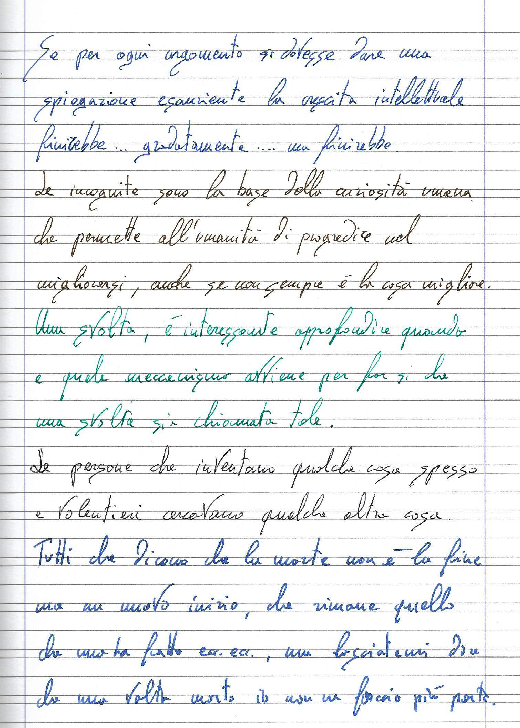 Se per ogni argomento si dovesse dare una
spiegazione esauriente la crescita intellettuale
finirebbe... gradatamente.... ma finirebbe.
Le incognite sono la base della curiosità umana
che permette all'umanità di progredire nel
migliorarsi, anche se non sempre è la cosa migliore.
Una svolta, è interessante approfondire quando
e quale meccanismo avviene per far si che
una svolta sia chiamata tale.
Le persone che inventano qualche cosa spesso
e volentieri cercavano qualche altra cosa.
Tutti che dicono che la morte non è la fine
ma un nuovo inizio, che rimane quello
che uno ha fatto ecc. ecc., ma lasciatemi dire
che una volta morto io non ne faccio più parte.